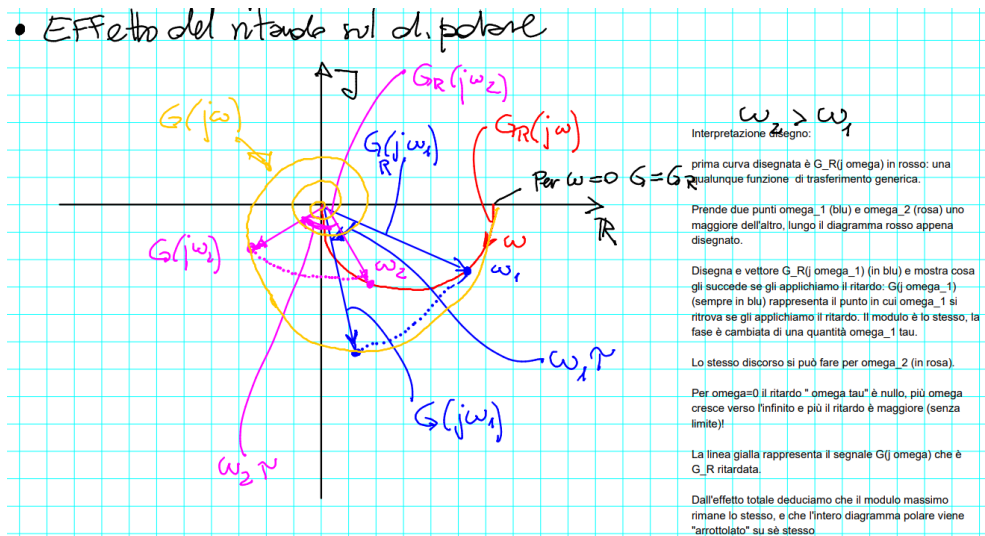 • Effetto del ritardo sul d. polare
J
G_R(jω_2)
G(jω)
G_R(jω_1)
G_R(jω)
ω_2 > ω_1
Per ω=0 G=G_R
ℝ
ω
G(jω_2)
ω_2
ω_1
ω_1 τ
G(jω_1)
ω_2 τ
Interpretazione disegno:
prima curva disegnata è G_R(j omega) in rosso: una
qualunque funzione di trasferimento generica.
Prende due punti omega_1 (blu) e omega_2 (rosa) uno
maggiore dell'altro, lungo il diagramma rosso appena
disegnato.
Disegna e vettore G_R(j omega_1) (in blu) e mostra cosa
gli succede se gli applichiamo il ritardo: G(j omega_1)
(sempre in blu) rappresenta il punto in cui omega_1 si
ritrova se gli applichiamo il ritardo. Il modulo è lo stesso, la
fase è cambiata di una quantità omega_1 tau.
Lo stesso discorso si può fare per omega_2 (in rosa).
Per omega=0 il ritardo " omega tau" è nullo, più omega
cresce verso l'infinito e più il ritardo è maggiore (senza
limite)!
La linea gialla rappresenta il segnale G(j omega) che è
G_R ritardata.
Dall'effetto totale deduciamo che il modulo massimo
rimane lo stesso, e che l'intero diagramma polare viene
"arrottolato" su sè stesso